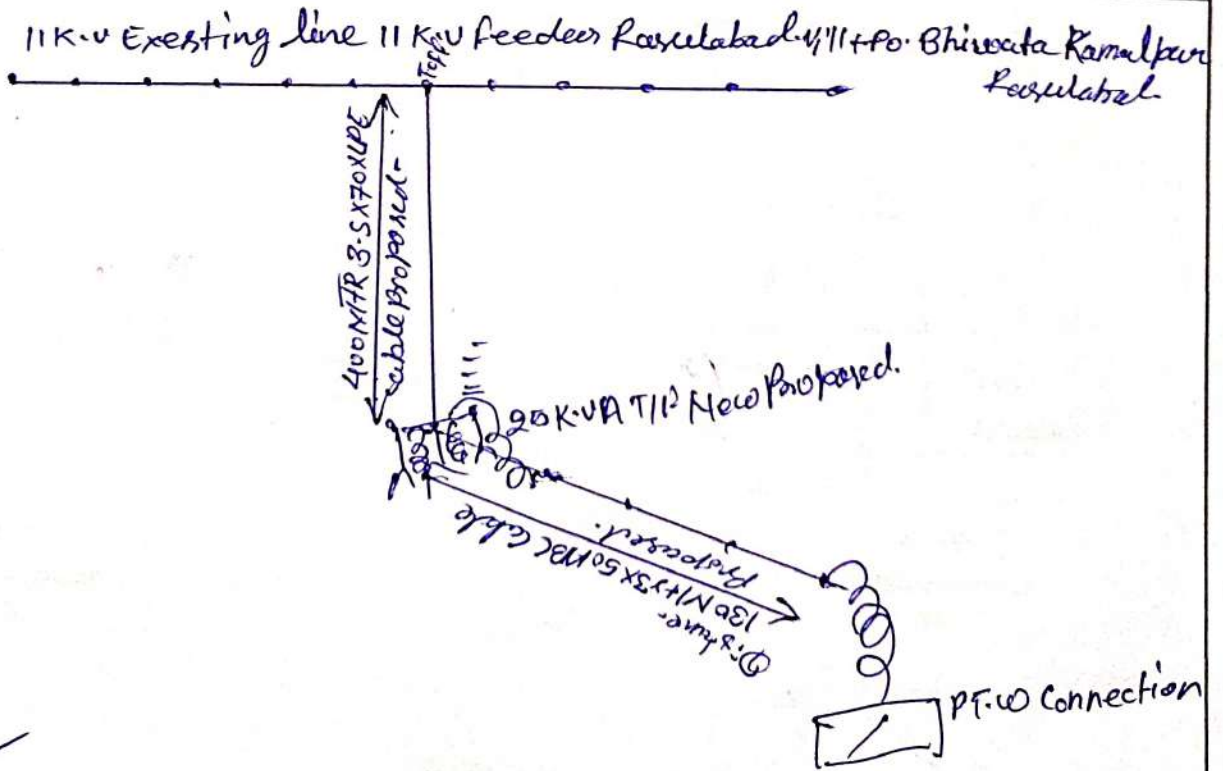 11 K.V Exesting line 11 K.V feeder Rasulabad. Vill+Po. Bhiwata Kamalpur
Rasulabad
400 MTR 3.5X70 XLPE
cable proposed.
25 K.VA T/P New Proposed.
Distance.
130 Mtr 3X50 ABC Cable
Proposed.
PT.W Connection